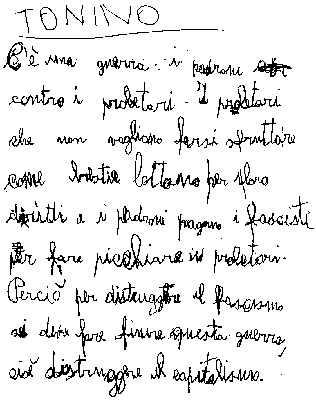 TONINO
C'è una guerra. i padroni
contro i proletari. I proletari
che non vogliono farsi sfruttare
come bestie lottano per i loro
diritti e i padroni pagano i fascisti
per fare picchiare i proletari.
Perciò per distruggere il fascismo
si deve fare finire questa guerra,
cioè distruggere il capitalismo.